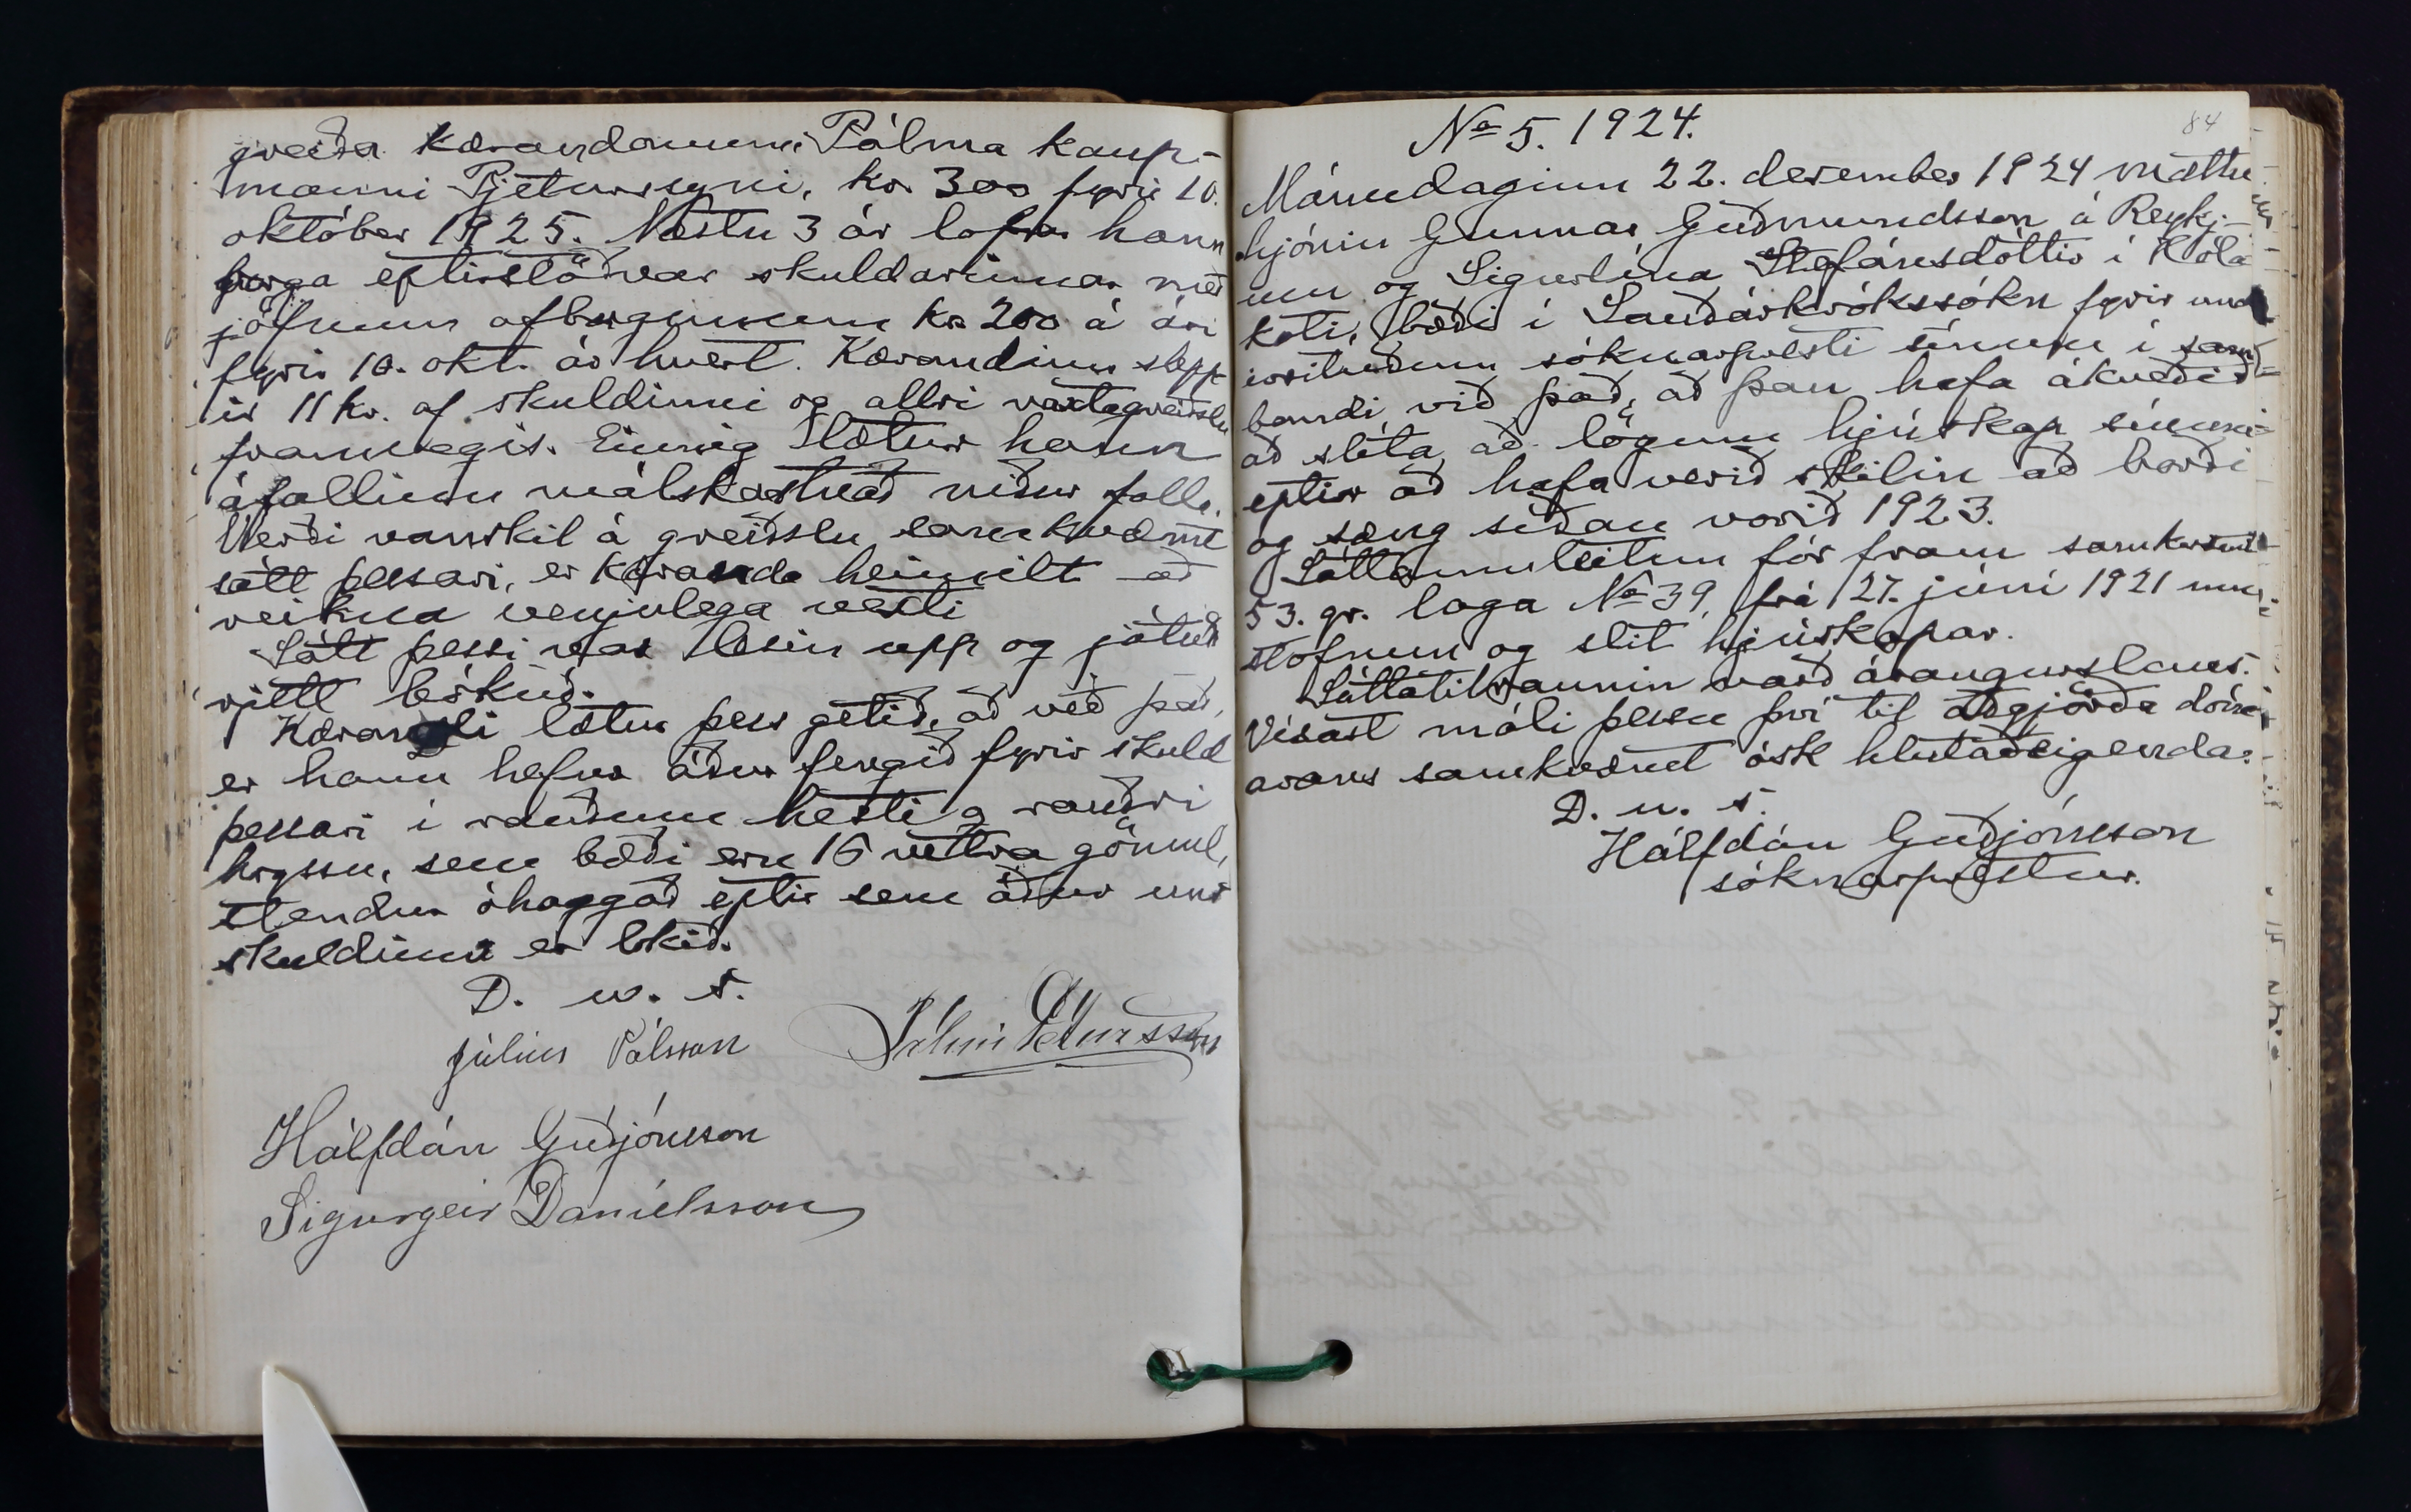 greiða kærandanum Pálma kaup-
manni Pjeturssyni, kr. 300 fyrir 10.
október 1925. Næstu 3 ár lofar hann
borga eptirstöðvar skuldarinnar með
jöfnum afborgunum kr 200 á ári
fyrir 10. okt. ár hvert. Kærandinn slepp
ir 11 kr. af skuldinni og allri vaxtagreiðslu
framvegis. Einnig lætur hann
áfallinn málskostnað niður falla.
Verði vanskil á greiðslu samkvæmt
sátt þessari, er kæranda heimilt að
reikna venjulega vexti
Sátt þessi var lesin upp og játuð
rjett bókuð.
Kærandi lætur þess getið, að við það,
er hann hefur áður fengið fyrir skuld
þessari í rauðum hesti og rauðri
hryssu, sem bæði eru 16 vetra gömul,
stendur óhaggað eptir sem áður uns
skuldinni er lokið.
D. u. s.
Júlíus Pálsson Pálmi Pétursson
Hálfdán Guðjónsson
Sigurgeir Daníelsson
84
No 5. 1924.
Mánudaginn 22. desember 1924 mættu
hjónin Gunnar Guðmundsson á Reykj-
um og Sigurlína Stefánsdóttir í Hóla
koti, bæði í Sauðárkrókssókn fyrir und
irrituðum sóknarpresti sínum í sam-
bandi við það, að þau hafa ákveðið
að slíta að lögum hjúskap sínum
eptir að hafa verið skilin að borði
og sæng síðan vorið 1923.
Sáttaumleitun fór fram samkvæmt
53. gr. laga No 39, frá 27. júní 1921 um
stofnun og slit hjúskapar.
Sáttatilraunin varð árangurslaus.
Vísast máli þessu því til aðgjörða dóm
arans samkvæmt ósk hlutaðeigenda.
D. u. s.
Hálfdán Guðjónsson
sóknarprestur.